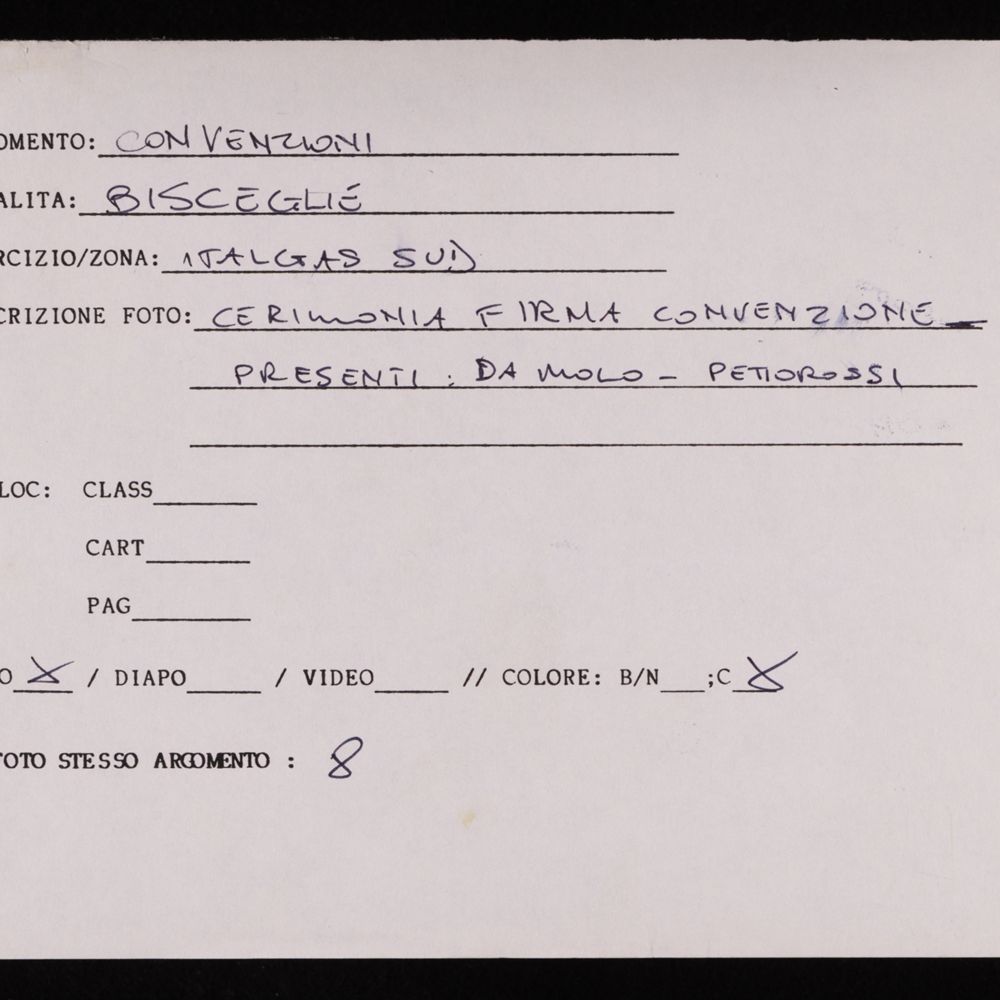 OMENTO: CONVENZIONI
ALITA: BISCEGLIE
RCIZIO/ZONA: ITALGAS SUD
CRIZIONE FOTO: CERIMONIA FIRMA CONVENZIONE
PRESENTI: DA MOLO - PETTOROSSI
LOC: CLASS
CART
PAG
O X / DIAPO / VIDEO // COLORE: B/N ;C X
FOTO STESSO ARGOMENTO : 8